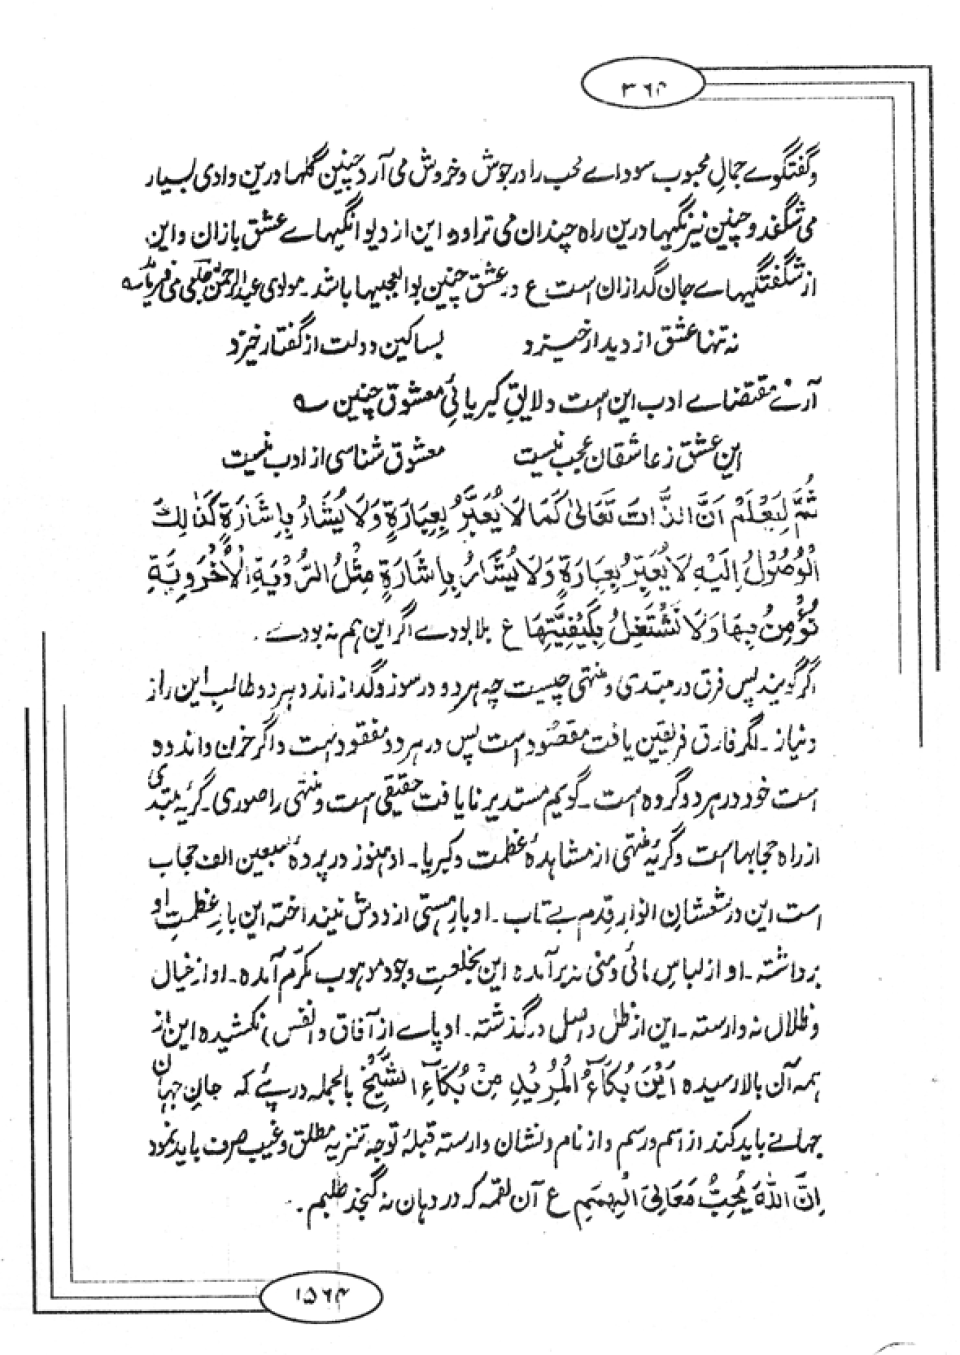 ۳۶۴
و گفتگوے جمالِ محبوب سوداے محب را در جوش و خروش می آرد چنین گلها درین وادی بسیار
می شگفد و چنین نیرنگیها درین راه چندان می تراود این از دیوانگیهاے عشق بازان و این
از شگفتگیهاے جان گدازان است ع در عشق چنین بوالعجبیها باشد۔ مولوی عبدالرحمن جامی می فرماید
نه تنها عشق از دیدار خیزد بسا کین دولت از گفتار خیزد
آرے مقتضاے ادب این است و لایقِ کبریائیِ معشوق چنین
این عشق ز عاشقان عجب نیست معشوق شناسی از ادب نیست
ثُمَّ لِیَعْلَمْ اَنَّ الذَّاتَ تَعَالیٰ کَمَا لَا یُعَبَّرُ بِعِبَارَةٍ وَلَا یُشَارُ بِاِشَارَةٍ کَذَالِكَ
الْوُصُوْلُ اِلَیْهِ لَا یُعَبَّرُ بِعِبَارَةٍ وَلَا یُشَارُ بِاِشَارَةٍ مِثْلُ الرُّؤْیَةِ الْاُخْرَوِیَّةِ
نُؤْمِنُ بِهَا وَلَا نَشْتَغِلُ بِکَیْفِیَّتِهَا ع بلا بودے اگر این هم نه بودے۔
اگر گویند پس فرق در مبتدی و منتهی چیست چه هر دو در سوز و گداز اند و هر دو طالبِ این راز
و نیاز۔ اگر فارق فریقین یافت مقصود است پس در هر دو مفقود است و اگر حزن و اندوه
است خود در هر دو گروه است۔ گویم مستدیر نایافت حقیقی است و منتهی را صوری۔ گریهٔ مبتدی
از راه حجابهاست و گریهٔ منتهی از مشاهدهٔ عظمت و کبریا۔ او هنوز در پردهٔ سبعین الف حجاب
است این در شعشان انوارِ قدم بے تاب۔ او بارِ هستی از دوش نینداخته این بارِ عظمتِ او
برداشته۔ او از لباسِ مائی و منی نه برآمده این بخلعتِ وجودِ موهوب مکرّم آمده۔ او از خیال
و ظلال نه وارسته۔ این از ظل و اصل درگذشته۔ او پاے از آفاق و انفس نکشیده این از
همه آن بالا رسیده اَیْنَ بُکَآءُ الْمُرِیْدِ مِنْ بُکَآءِ الشَّیْخِ بالجمله درپئے که جانِ جهان
جهانے باید کند از اسم و رسم و از نام و نشان وارسته قبلهٔ توجه تنزیه مطلق و غیبِ صرف باید نمود
اِنَّ اللهَ یُحِبُّ مَعَالِیَ الْهِمَمِ ع آن لقمه که در دهان نه گنجد طلبم۔
۱۵۶۴